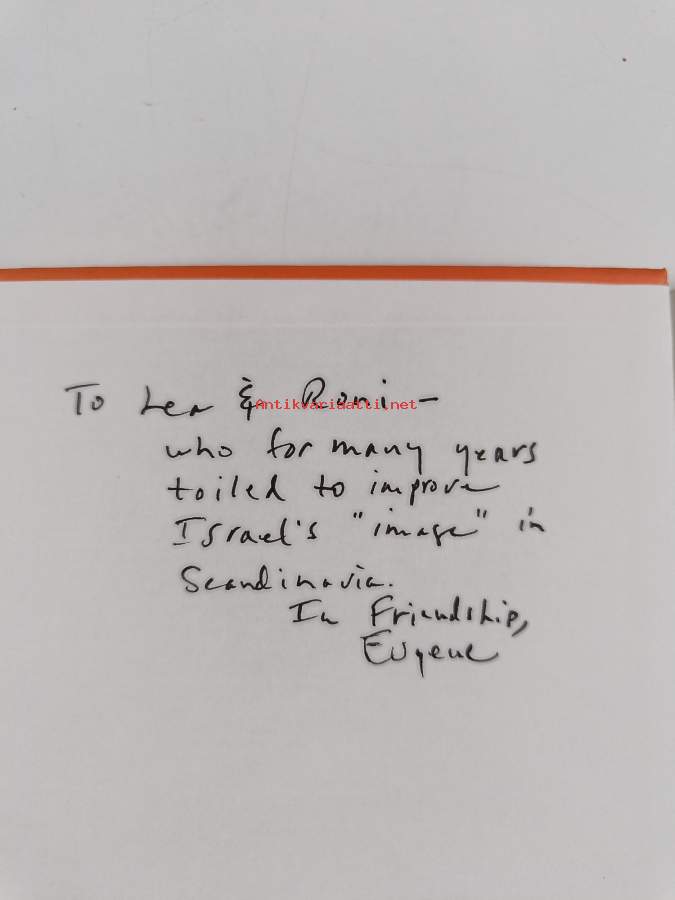 To Lea & Roni –
Antikvariaatti.net
who for many years
toiled to improve
Israel's "image" in
Scandinavia.
In Friendship,
Eugene